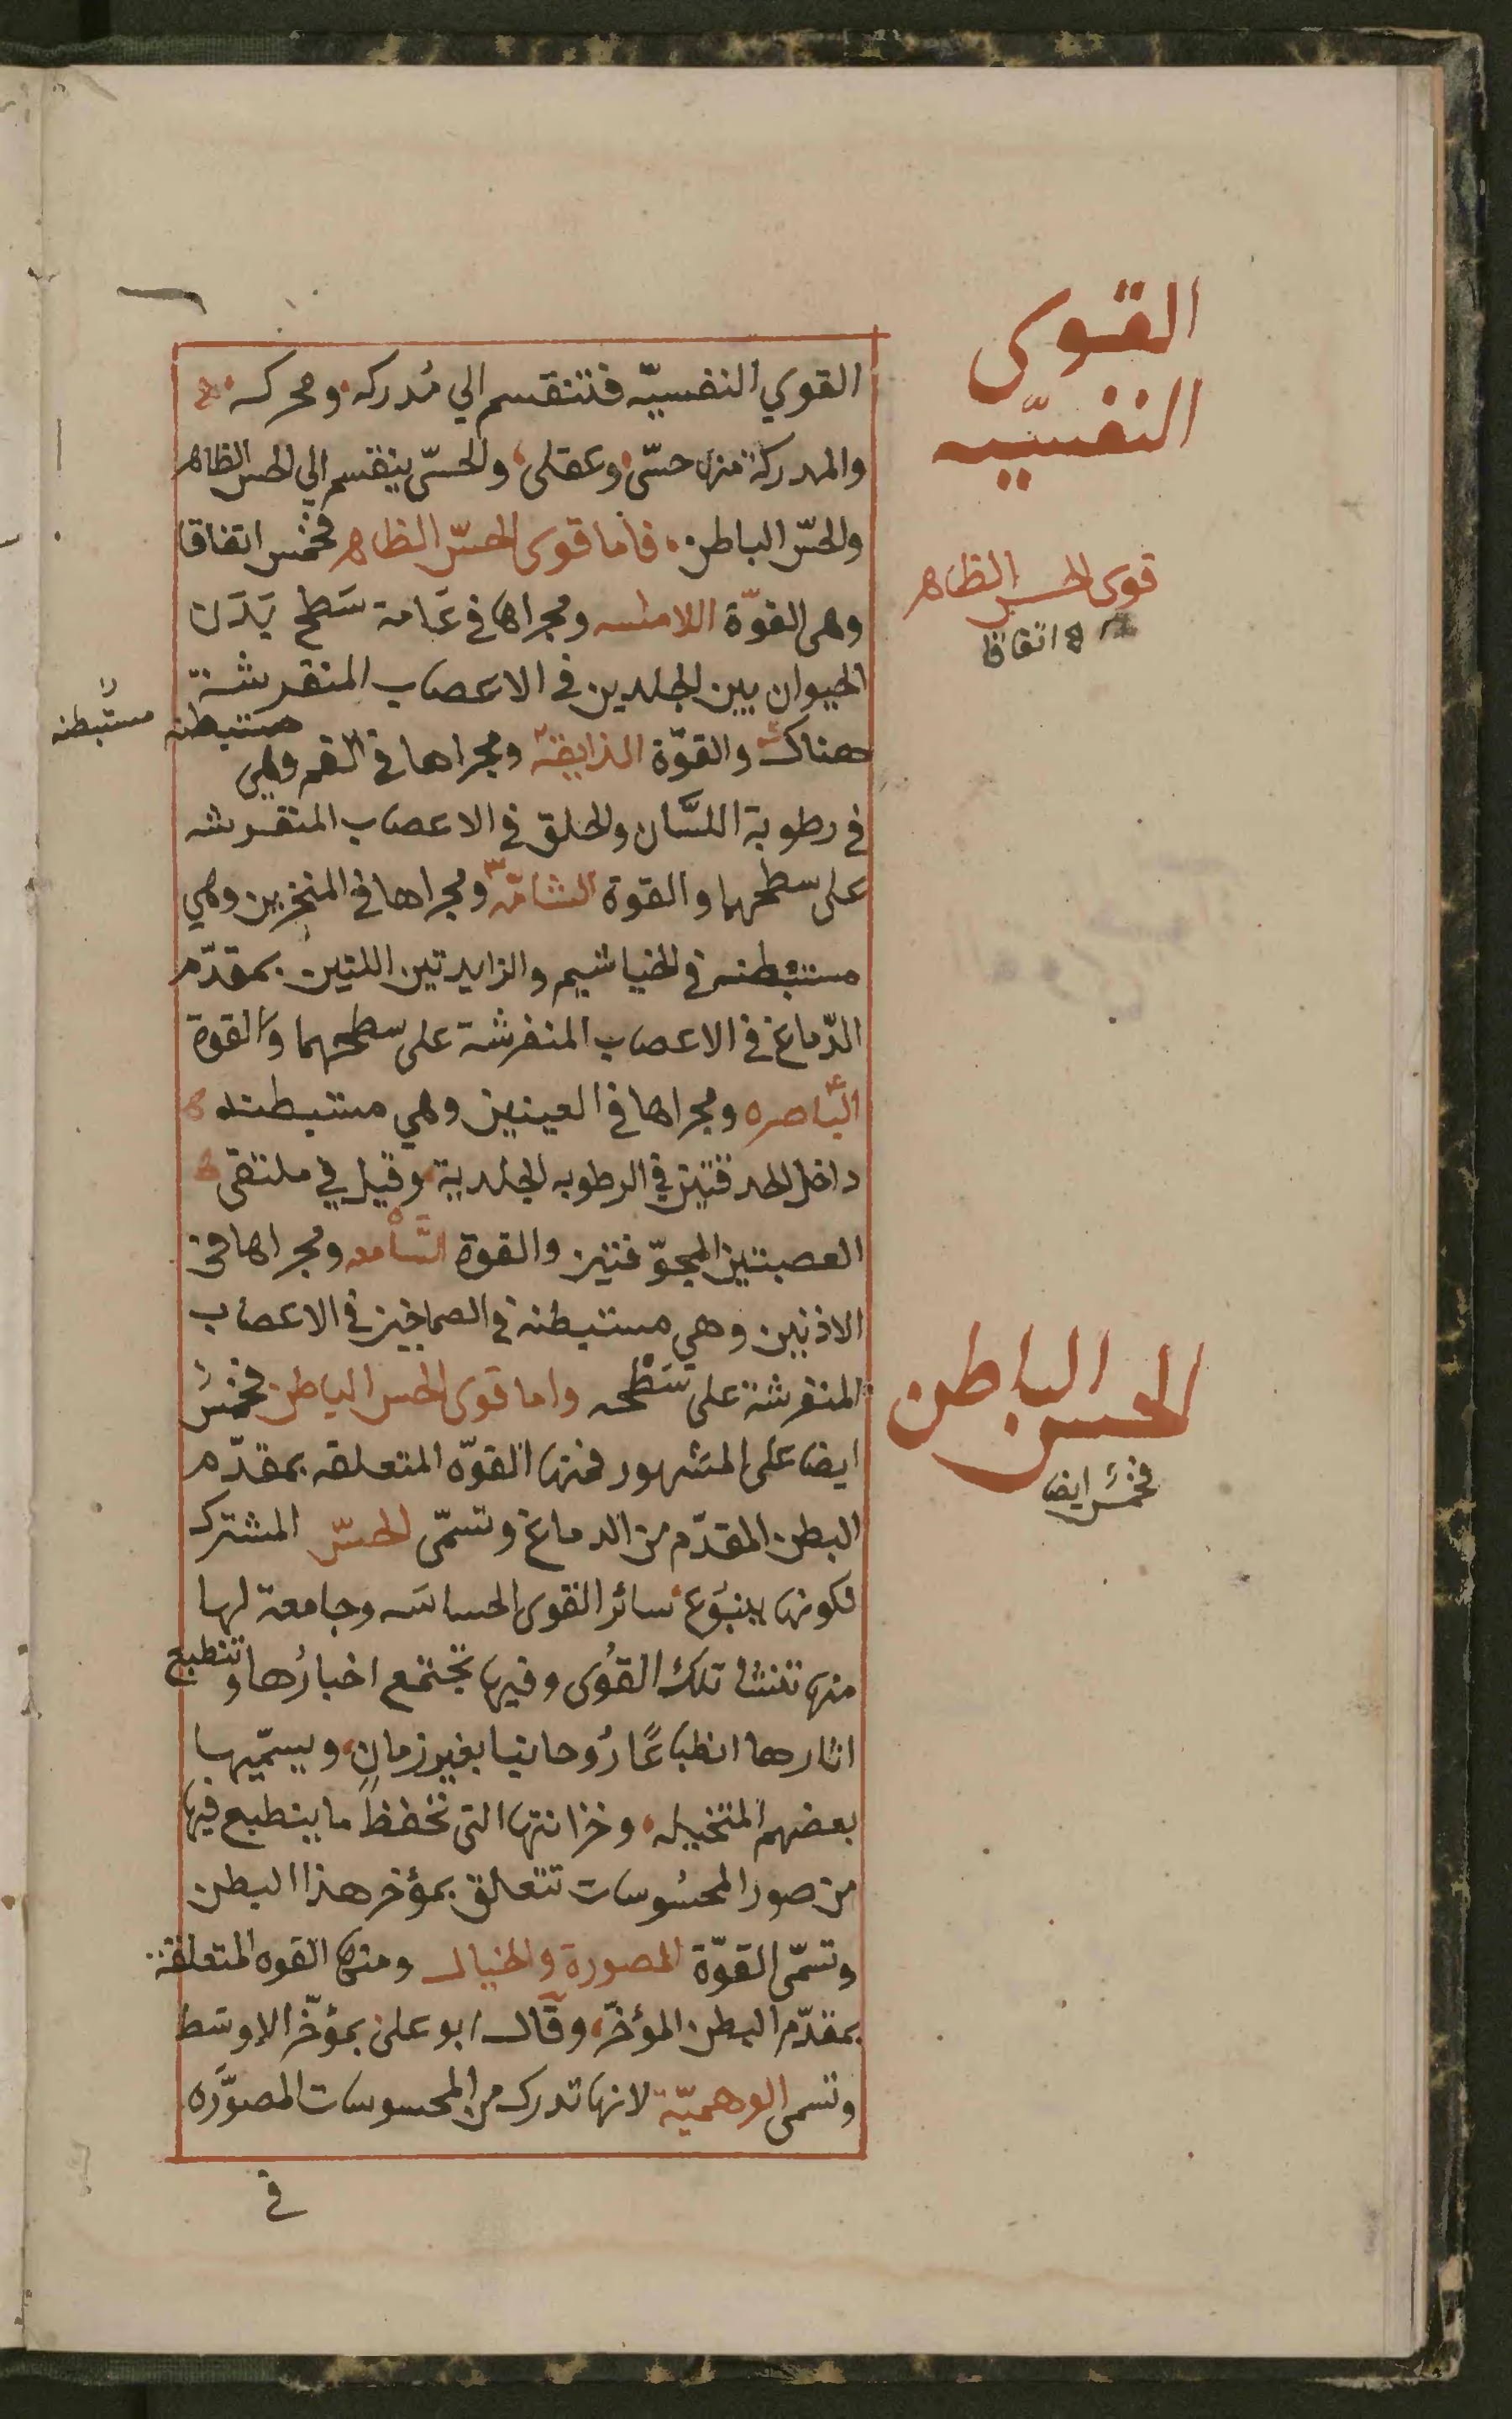 القوى
النفسيّه
القوي النفسيّه فتنقسم الي مُدركه ومحركه
والمدركة منها حسّى وعقلى والحسّى ينقسم الي الحس الظاهر
والحسّ الباطن فاما قوى الحسّ الظاهر فخمس اتفاقا
قوى الحس الظاهر
ه اتفاقا
وهى القوّة اللامسه ومجراها في عَامة سَطح بَدَن
الحيوان بين الجلدين في الاعصاب المنفرشة
هناك والقوّة الذايقة ومجراها في الفم وهي مستبطنه
مستبطنه
في رطوبة اللسَّان والحلق في الاعصاب المنفرشه
على سطحهما والقوة الشامّه ومجراها في المنخرين وهي
مستبطنه في الخياشيم والزايدتين اللتين بمقدّم
الدّماغ في الاعصاب المنفرشة على سطحهما والقوة
البَّاصره ومجراها في العينين وهي مستبطنه
داخل الحدقتين في الرطوبه الجلدية وقيل في ملتقى
العصبتين المجوّفتين والقوة السَّامعه ومجراها في
الاذنين وهي مستبطنه في الصماخين في الاعصاب
المنفرشة على سَطْحه واما قوى الحس الباطن فخمسُ
الحس الباطن
فخمسُ ايضا
ايضا على المشهور فمنها القوّه المتعلقه بمقدّم
البطن المقدّم من الدماغ وتسمّى الحسّ المشترك
لكونها ينبوع سائر القوى الحساسَه وجامعة لها
منها تنشأ تلك القُوى وفيها تجتمع اخبارُها وتنطبع
اثارها انطباعًا رُوحانيا بغير زمانٍ ويسمّيها
بعضهم المتخيله وخزانتها التى تحفظ ما ينطبع فيها
من صور المحسُوسات تتعلق بمؤخر هذا البطن
وتسمّى القوّة المصورة والخيال ومنها القوه المتعلقة
بمقدّم البطن المؤخرّ وقال ابو على بمؤخّر الاوسَط
وتسمى الوهميّة لانها تدرك من المحسوسات المصوَّره
في